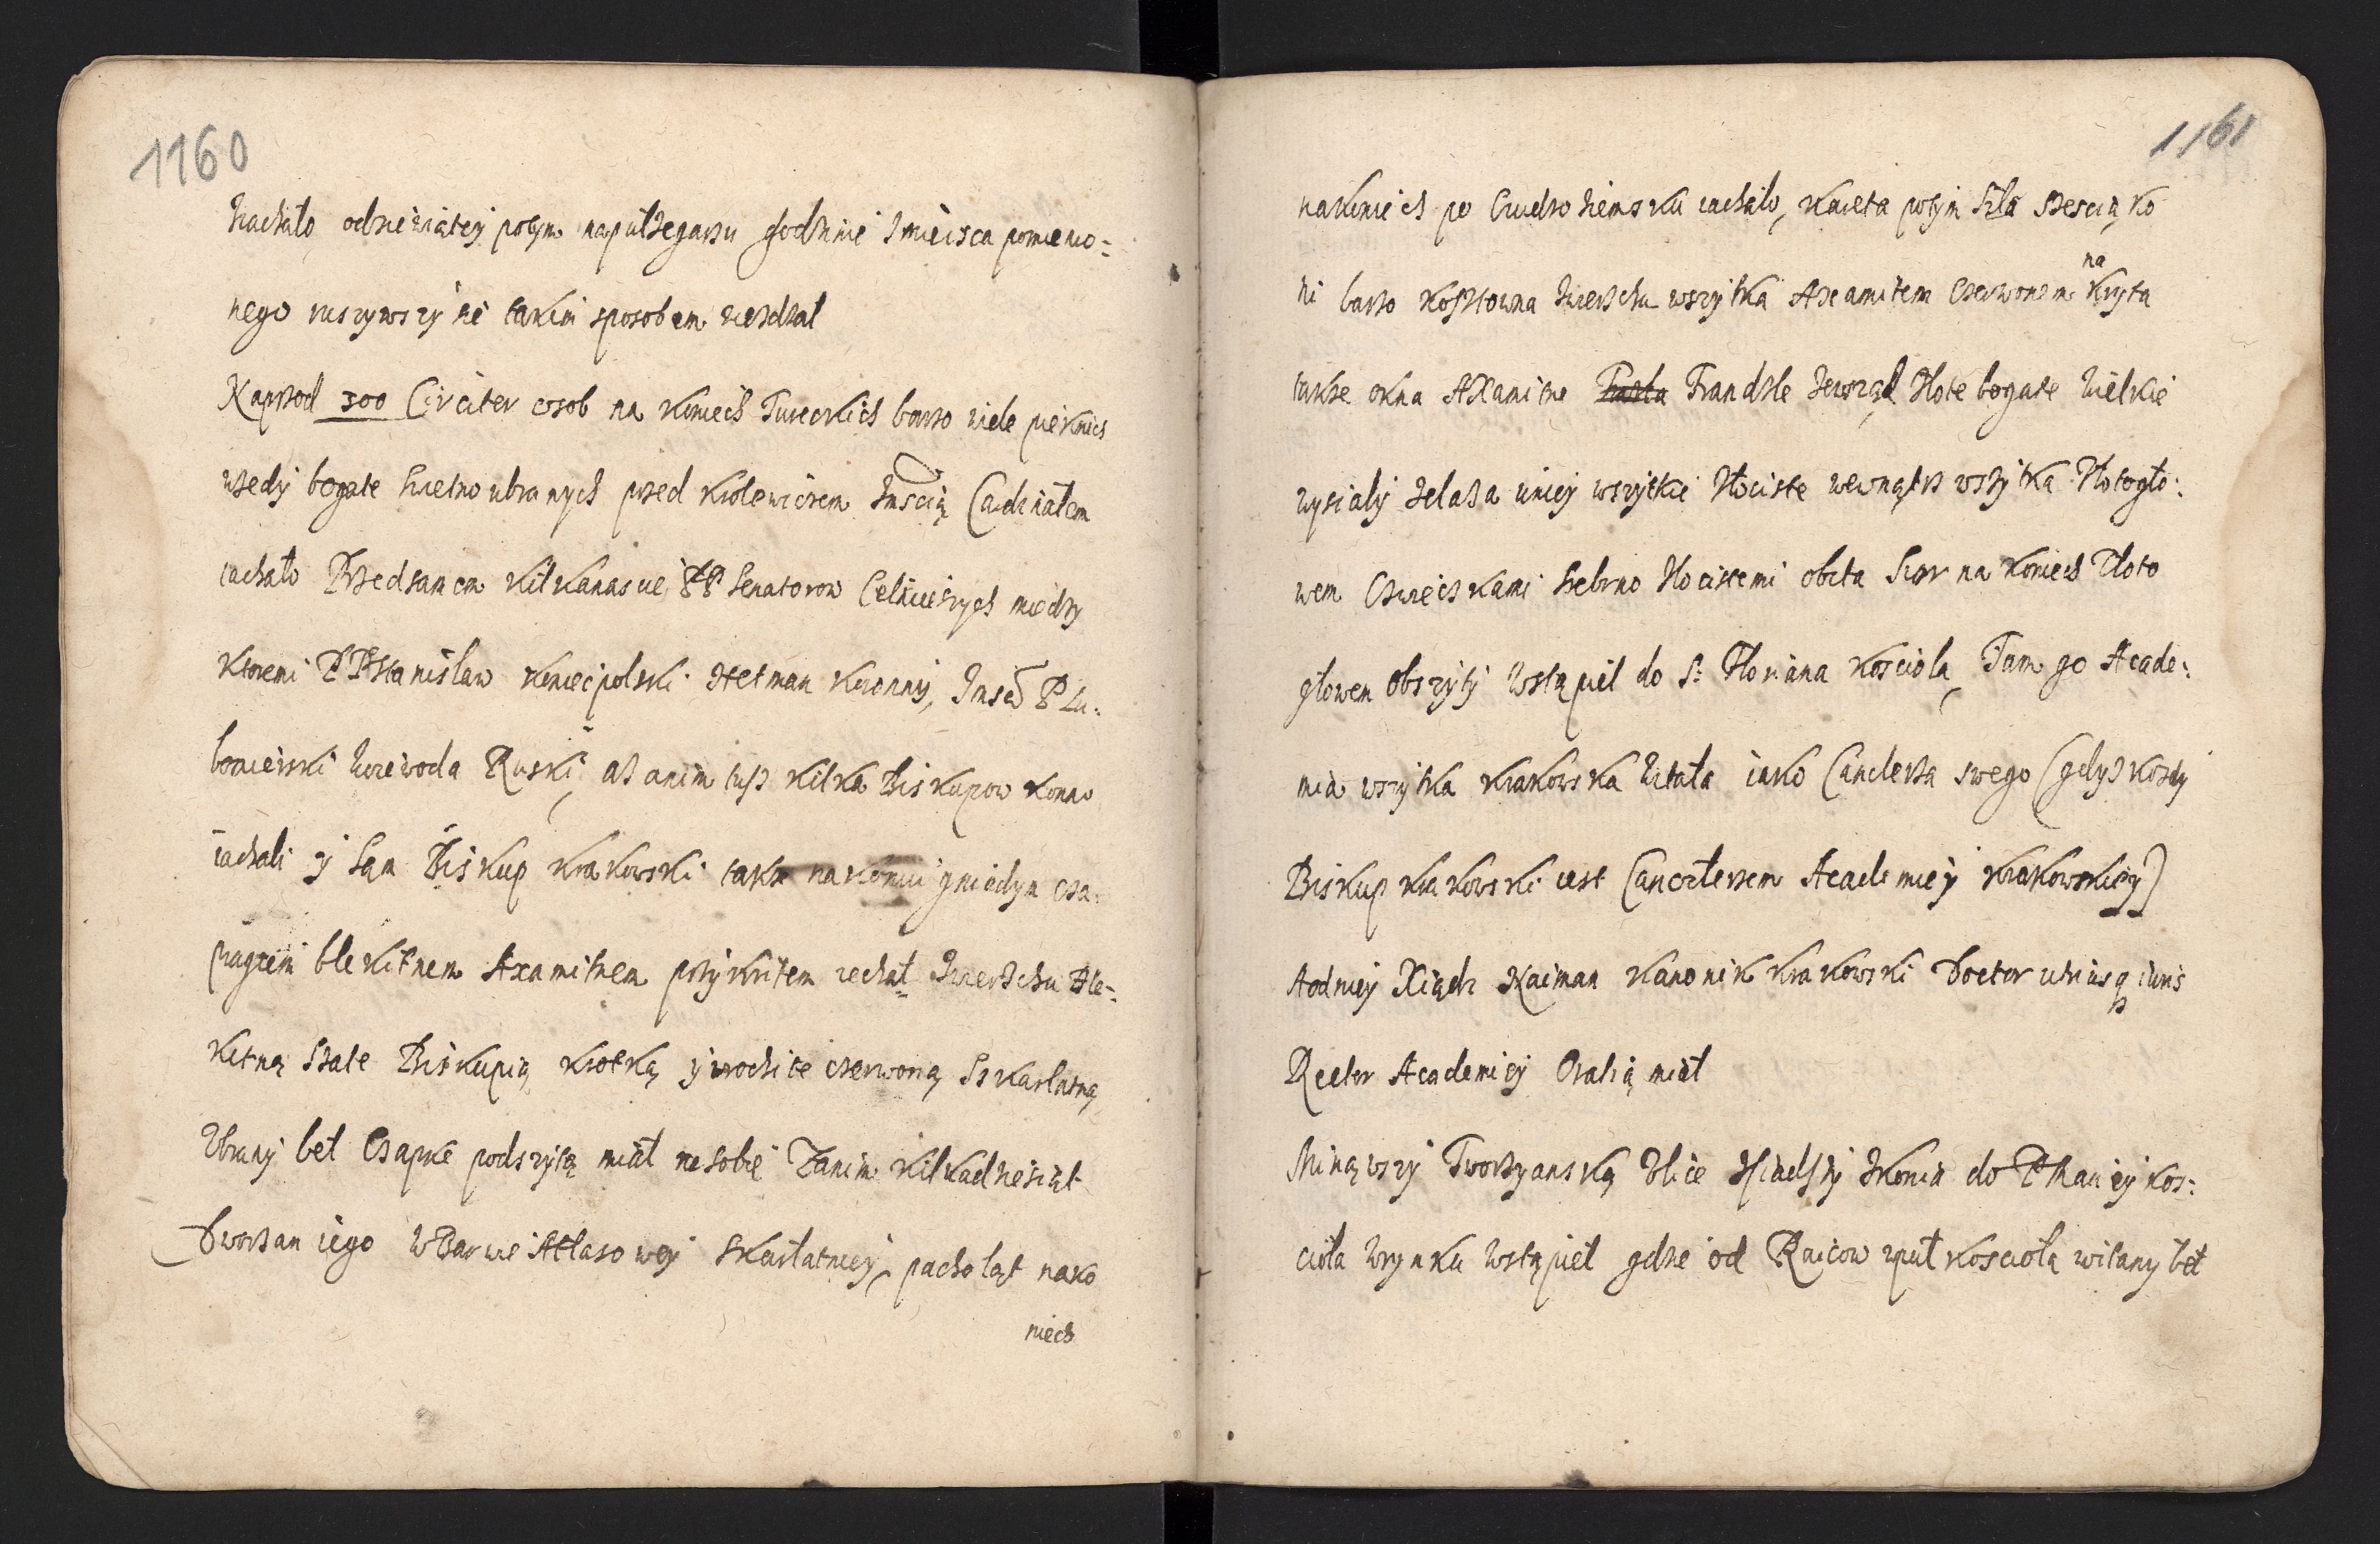 1160
ziachało, odzieiątey potym napułzegarzu godzinie Zmieisca pomenio=
nego ruszywszy sie takim sposobem wiezdzał
Naprzod 300 Circiter osob na koniech Tureckich barzo wiele pieknich
wzedy bogate swietno ubranych przed Krolewiczem Jmscią Cardinałem
iachało Przedsamem kilkanascie PP Senatorow Celnieiszych miedzy
ktoremi P P Stanisław koniecpolski Hetman koronny, Jmsc P Lu=
bomierski Woiewoda Ruski, asz anim tusz kilka Biskupow konno
iachali y Sąm Biskup krakowski takze nakoniu gniedym cza=
pragiem blekitnem Axamitnem przykritem iechał Zwierzchu Ble=
kitną Szate Biskupią krotką y wrochite czerwoną Szkarlatną
Ubrany beł Czapke podszytą miał na sobie Zanim kilkadziesiąt
Dworzan iego WBarwie Atlasowey Szkarłatney, pacholąt nako
niech
1161
nakoniech po Cudzoziemsku iachało, kareta potym szła szescią ko
ni barzo kosztowna Zwierzchu wszytka Axamitem Czerwonem na kryta
takze okna AXamitne Frandzle Zewsząd Złote bogate Wielkie
wysiały Zelaza uniey wszytkie Złociste wewnątrz wszytka Złotogło=
wem Czwieczkami srebrno Złocistemi obita Szor na koniech Złoto
głowem obszyty Wstąpieł do S: Floriana kosciola, Tam go Acade=
mia wszytka krakowska Witała iako Canclerza swego (gdysz kozdy
Biskup krakowski iest Canczlerzem Academiey krakowskiey)
Aodniey Xiądz Naiman kanonik krakowski Doctor utriusq iuris
Rector Academiey Oratią miał
Minąwszy Tworzyanską Ulice Zsiadszy Zkonia do P Maryey kos=
cioła Wrynku Wstąpieł gdzie od Raicow wput kosciola witany beł